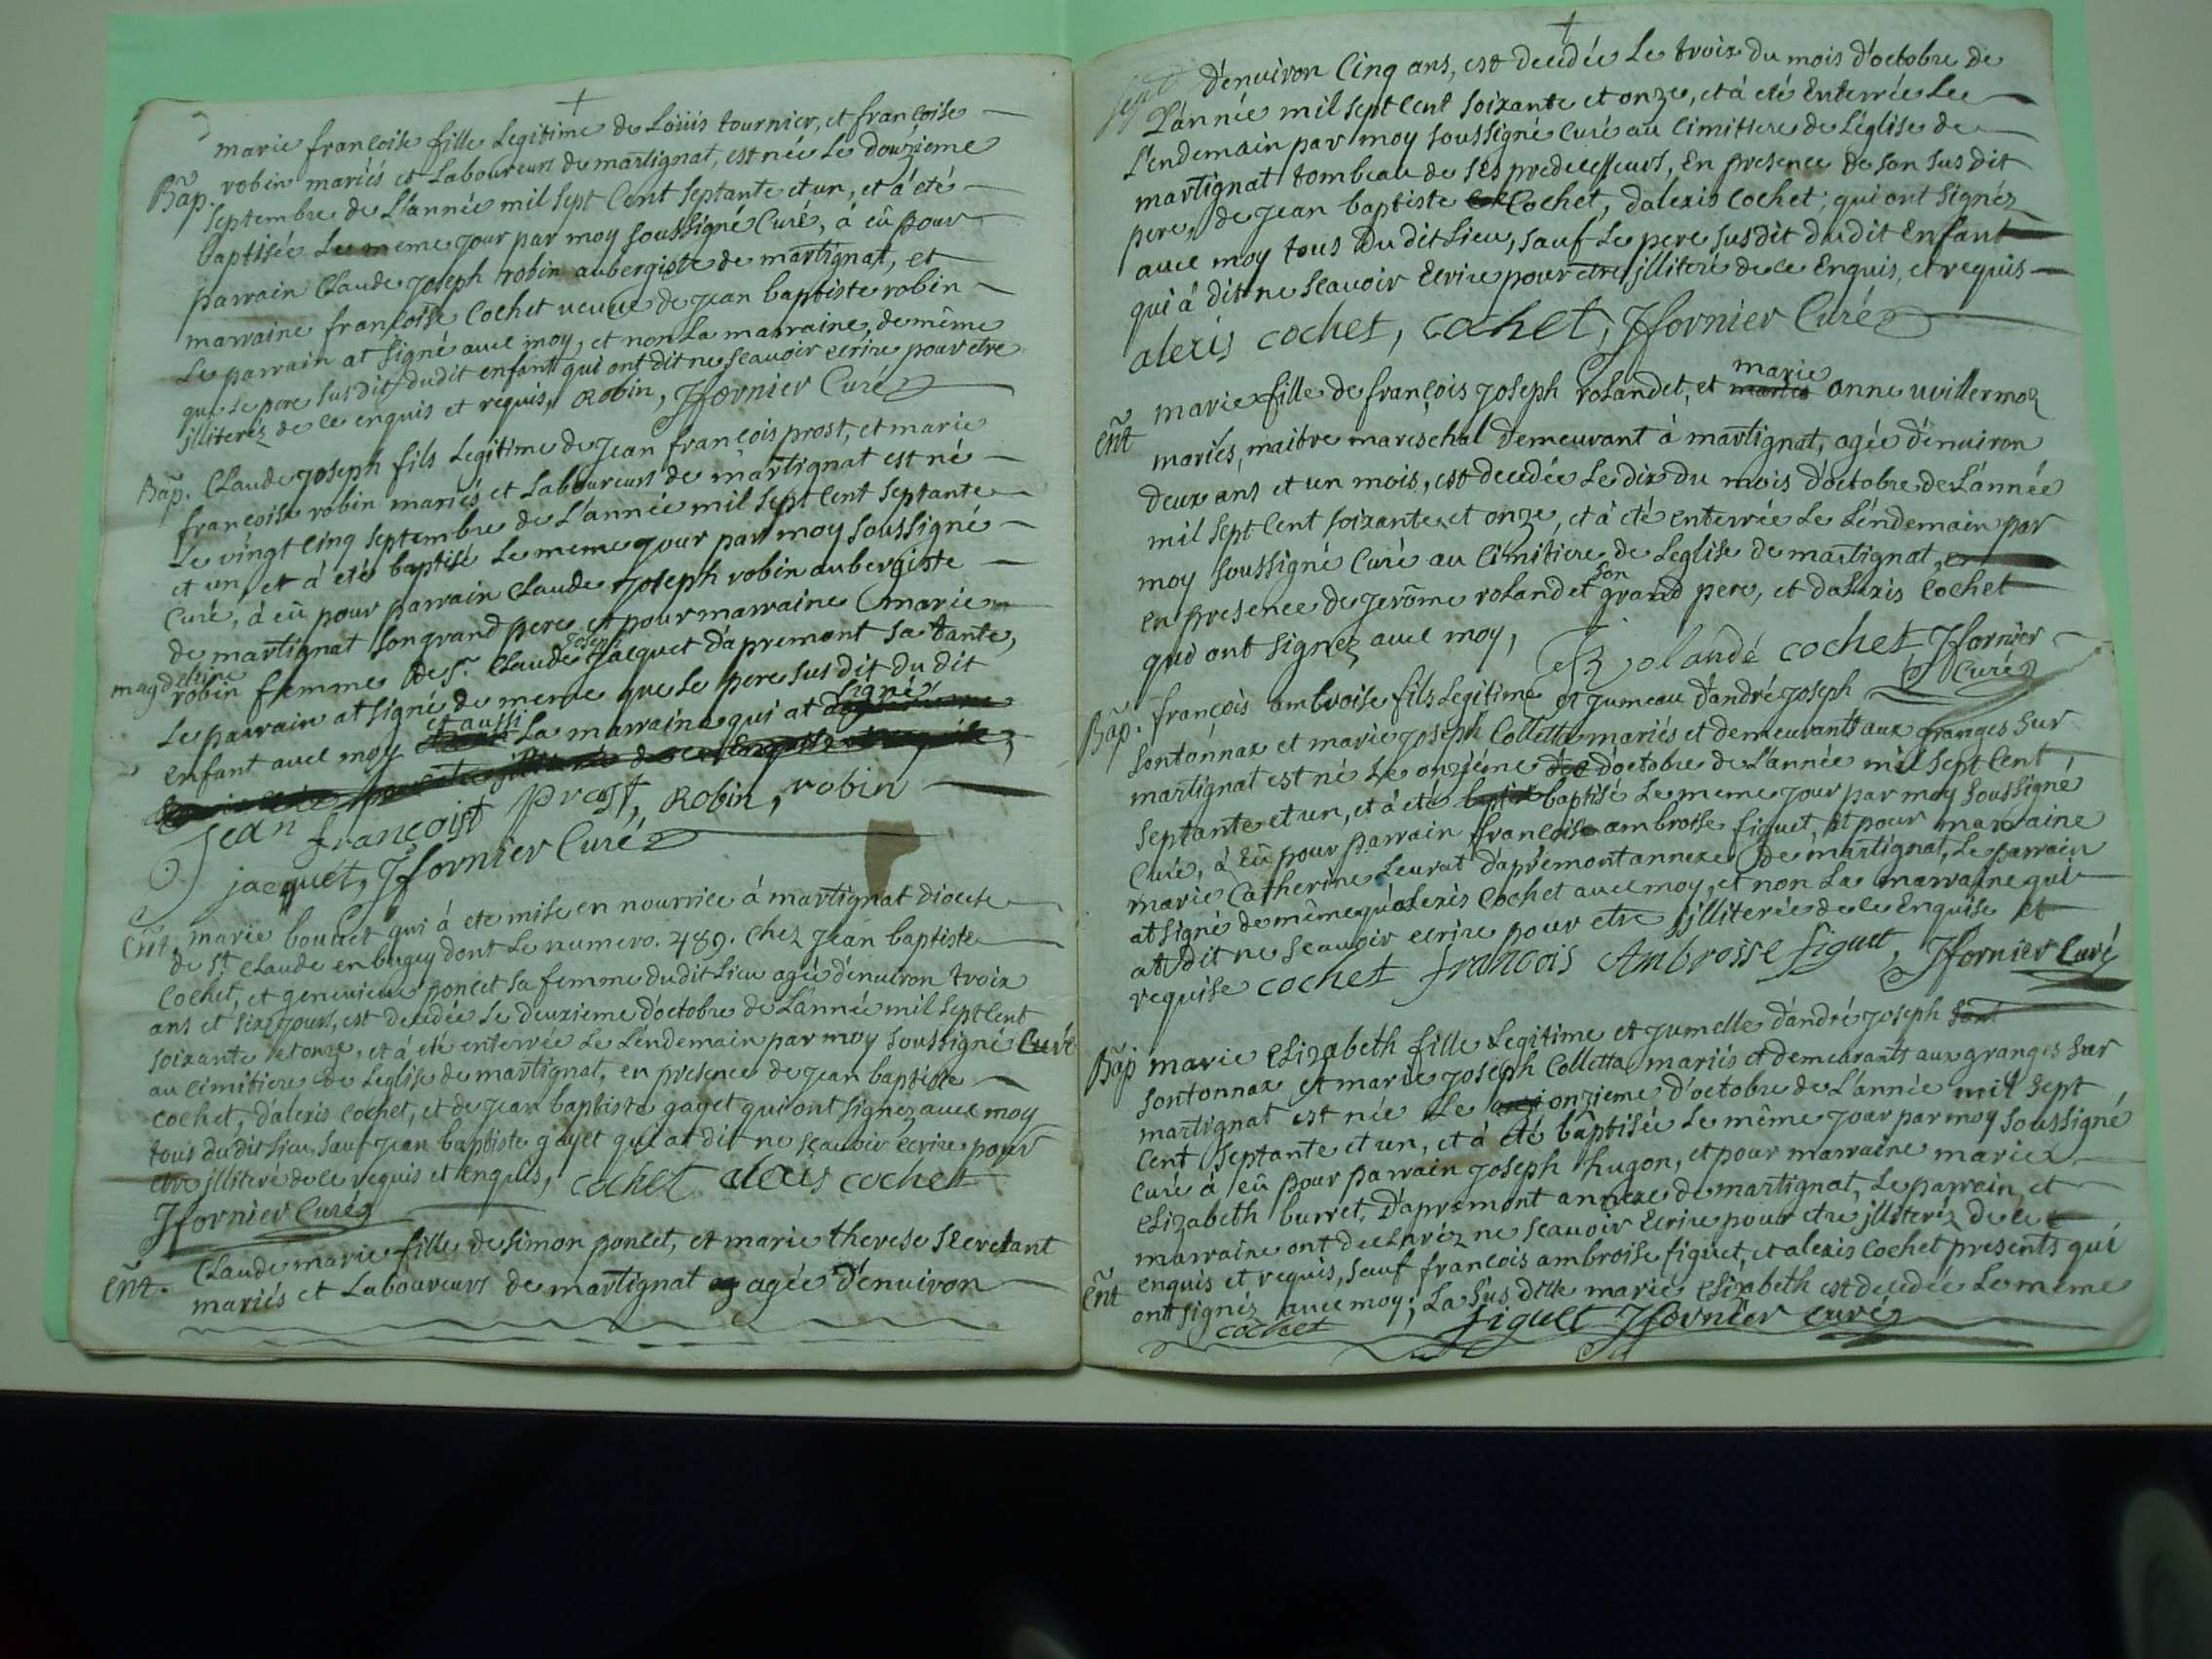 marie francoise fille Legitime de Loüis tournier, et francoise
Bãp. robin mariés et Laboureurs de martignat, est née Le douzieme
septembre de L'année mil sept Cent septante et un, et à été
baptisée Le meme jour par moy soussigné Curé, à eû pour
parrain Claude joseph robin aubergiste de martignat, et
marraine françoise Cochet veuve de jean baptiste robin
Le parrain at signé avec moy, et non La marraine, de même
que Le pere susdit dudit enfant qui ont dit ne scavoir ecrire pour etre
jlliteréz de ce enquis et requis, Robin, Jfornier Curé
Bãp. Claude joseph fils Legitime de jean françois prost, et marie
francoise robin mariés et Laboureurs de martignat est né
Le vingt Cinq septembre de L'année mil sept Cent septante
et un, et à eté baptisé Le meme jour par moy soussigné
Curé, à eû pour parrain Claude joseph robin aubergiste
de martignat son grand pere et pour marraine marie
magdelaine
robin femme de sr. Claude joseph jacquet d'apremont sa tante,
Le parrain at signé de meme que Le pere susdit du dit
enfant avec moy et aussi La marraine qui at signé
jean françoist prost, Robin, robin
jacquet, Jfornier Curé
Eñt. marie bouvet qui à ete mise en nourrice à martignat diocese
de St. Claude en bugey dont Le numero. 489. Chez jean baptiste
Cochet, et genevieve poncet sa femme dudit Lieu agée d'environ troix
ans et six jours, est decedée Le deuxieme d'octobre de L'année mil sept Cent
soixante et onze, et à eté enterrée Le Léndemain par moy soussigné Curé
au cimitiere de Leglise de martignat, en presence de jean baptiste
Cochet, d'alexis Cochet, et de jean baptiste gayet qui ont signez avec moy
tous dudit Lieu, sauf jean baptiste gayet qui at dit ne sçavoir ecrire pour
etre jlliteré de ce requis et enquis, cochet alexis cochet
Jfornier Curé
Eñt. Claude marie fille de simon poncet, et marie therese secretant
mariés et Laboureurs de martignat agée d'environ
d'environ Cinq ans, est decedée Le troix du mois d'octobre de
L'année mil sept Cent soixante et onze, et à eté Enterrée Le
L'endemain par moy soussigné Curé au Cimitiere de L'église de
martignat tombeau de ses predecesseurs, En presence de son susdit
pere, de jean baptiste Cochet, d'alexis Cochet; qui ont signéz
avec moy tous du dit Lieu, sauf Le pere susdit dudit Enfant
qui à dit ne scavoir Ecrire pour etre jlliteré de ce Enquis, et requis
alexis cochet, cochet, Jfornier Curé
Eñt marie fille de françois joseph rolandet, et marie anne vuillermoz
mariés, maitre mareschal demeurant à martignat, agée d'environ
deux ans et un mois, est decedée Le dix du mois d'octobre de L'année
mil sept Cent soixante et onze, et à été enterrée Le Léndemain par
moy soussigné Curé au Cimitiere de Leglise de martignat,
en presence de jerôme rolandet son grand pere, et d'alexis Cochet
qui ont signez avec moy, rolandé cochet Jfornier
Curé
Bãp. françois ambroise fils Legitime et jumeau d'andré joseph
sontonnax et marie joseph Colletta mariés et demeurants aux granges sur
martignat est né Le onzième d'octobre de L'année mil sept Cent
septante et un, et à eté baptisé Le meme jour par moy soussigné
Curé, à eû pour parrain francoise ambroise figuet, et pour marraine
marie Catherine Leurat d'apremont annexe de martignat, Le parrain
at signé de même qu'alexis Cochet avec moy, et non La marraine qui
at dit ne scavoir ecrire pour etre jlliterée de ce Enquise et
requise cochet francois Ambroisse figuet, Jfornier Curé
Bãp marie Elizabeth fille Legitime et jumelle d'andré joseph
sontonnax et marie joseph Colletta mariés et demeurants aux granges sur
martignat est née Le onzieme d'octobre de L'année mil sept
Cent septante et un, et à été bâptisée Le même jour par moy soussigné
Curé à eû pour parrain joseph hugon, et pour marraine marie
Elizabeth burret, d'apremont annexe de martignat, Le parrain et
marraine ont declaréz ne scavoir Ecrire pour etre jlliteréz de ce
enquis et requis, sauf francois ambroise figuet, et alexis Cochet presents qui
Eñt ont signéz avec moy; La sus ditte marie Elizabeth est decedée Le même
cochet figuet Jfornier curé